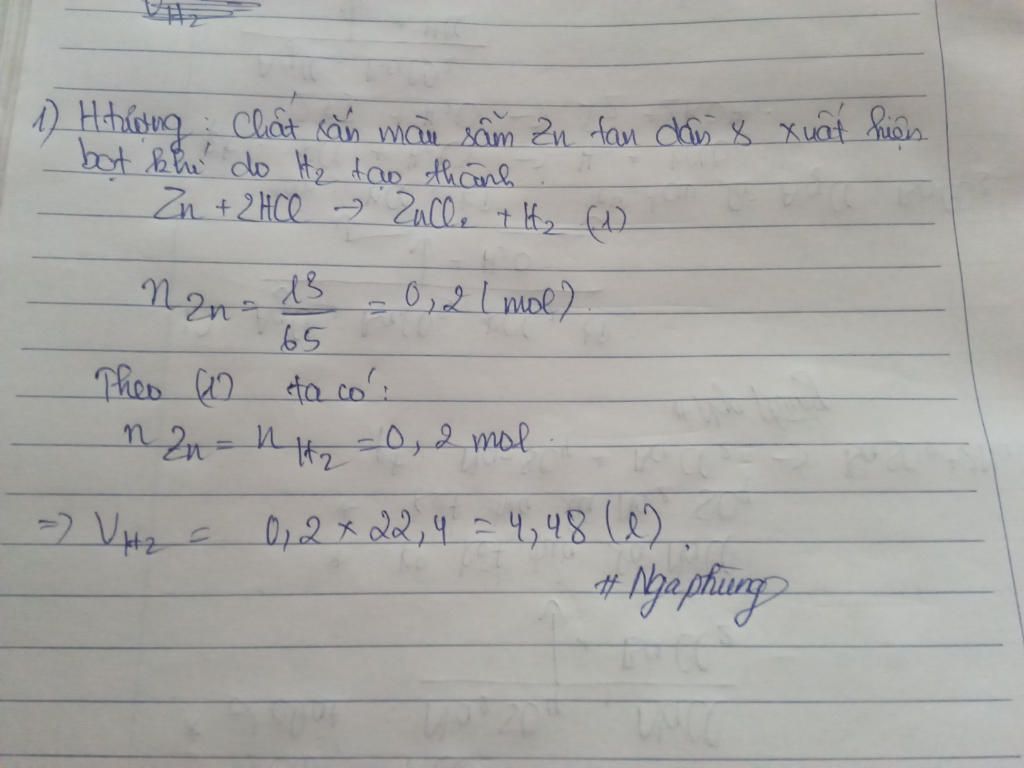 V H₂
1) H tượng : Chất rắn màu sẫm Zn tan dần & xuất hiện
bọt khí do H₂ tạo thành.
Zn + 2HCl → ZnCl₂ + H₂ (1)
n Zn = 13/65 = 0,2 (mol).
Theo (1) ta có:
n Zn = n H₂ = 0,2 mol.
=> V H₂ = 0,2 × 22,4 = 4,48 (l).
# Ngaphùng